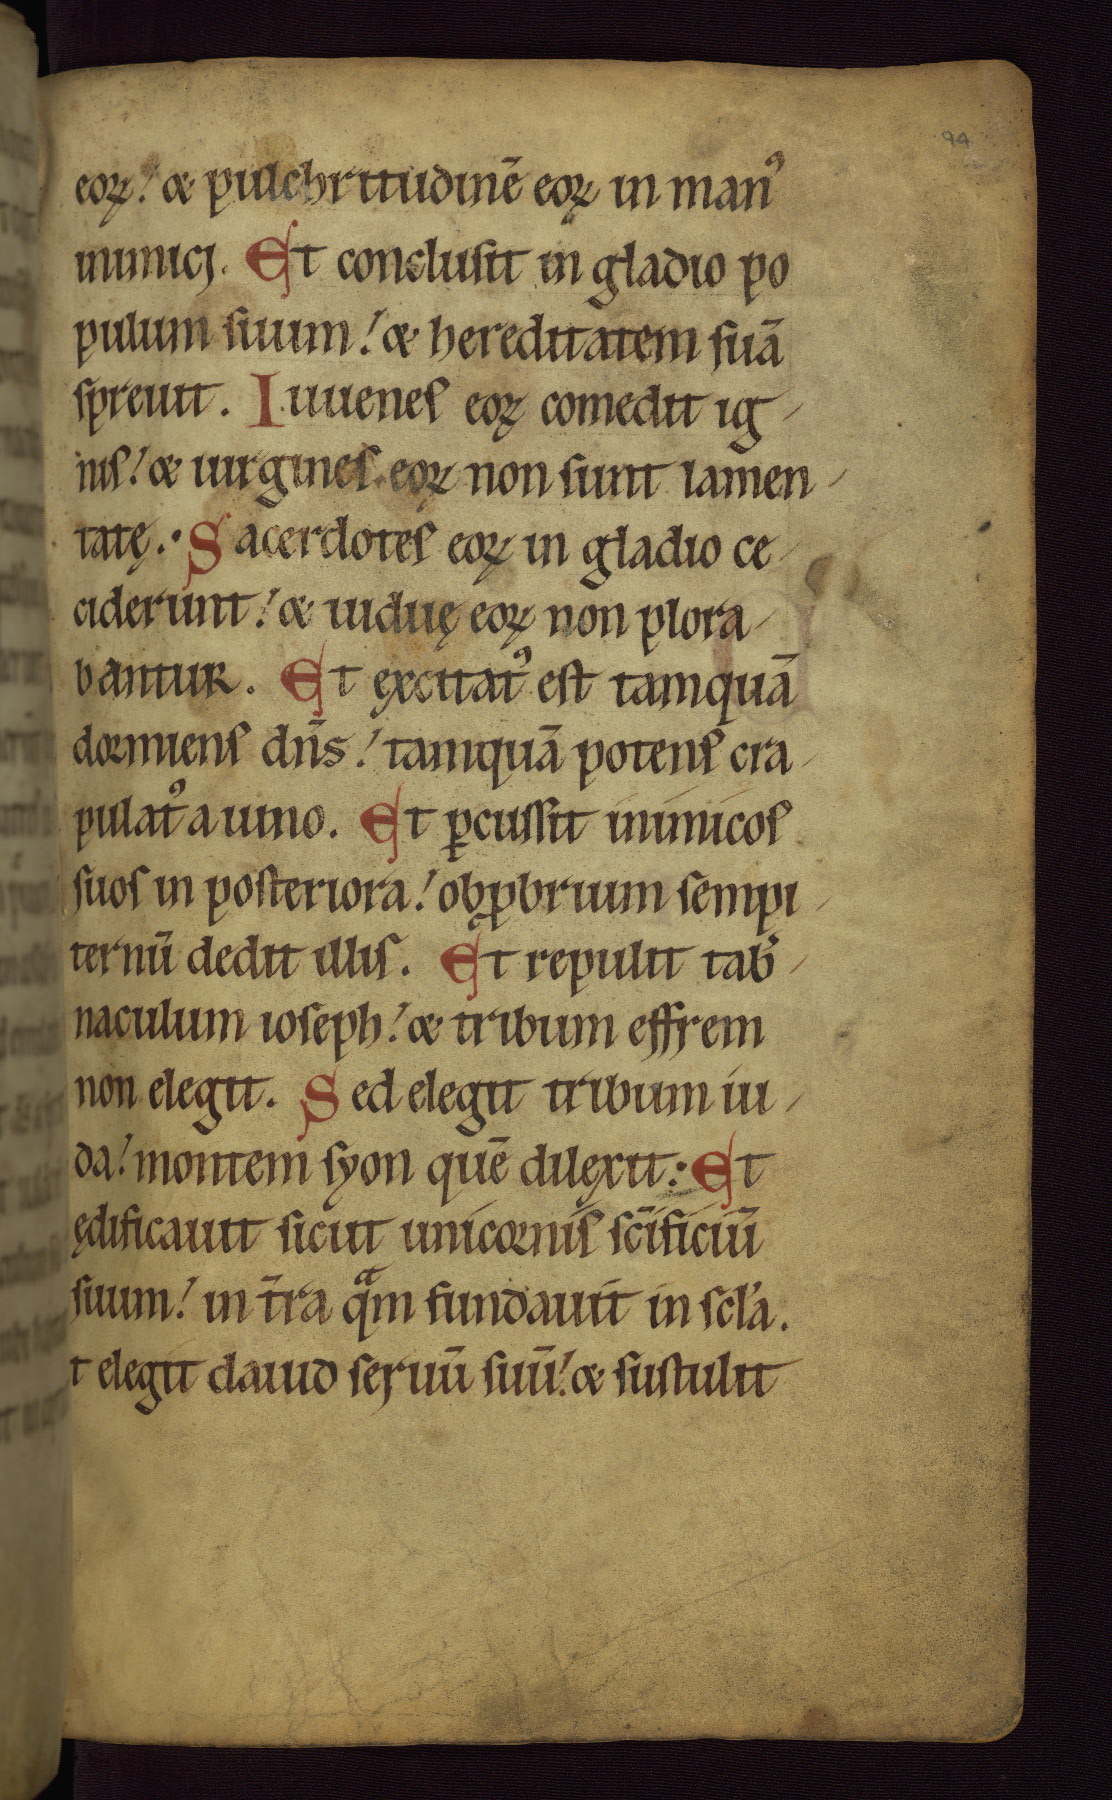 94
eoꝝ! & pulchritudinē eoꝝ in man᾿
inimicj. Et conclusit in gladio po
pulum suum! & hereditatem suā
spreuit. Iuuenes eoꝝ comedit ig-
nis! & uirgines eoꝝ non sunt lamen-
tatę. Sacerdotes eoꝝ in gladio ce-
ciderunt! & uiduę eoꝝ non plora-
bantur. Et excitat᾿ est tamquā
dormiens dn̄s! tamquā potens cra-
pulat᾿ a uino. Et ꝑcussit inimicos
suos in posteriora! obꝓbrium sempi-
ternū dedit illis. Et repulit tab̓-
naculum ioseph! & tribum effrem
non elegit. Sed elegit tribum iu-
da! montem syon quē dilexit: Et
ędificauit sicut unicornis sc̄ificiū
suum! in t̄ra qᵃm fundauit in scl̓a.
t elegit dauid seruū suū! & sustulit